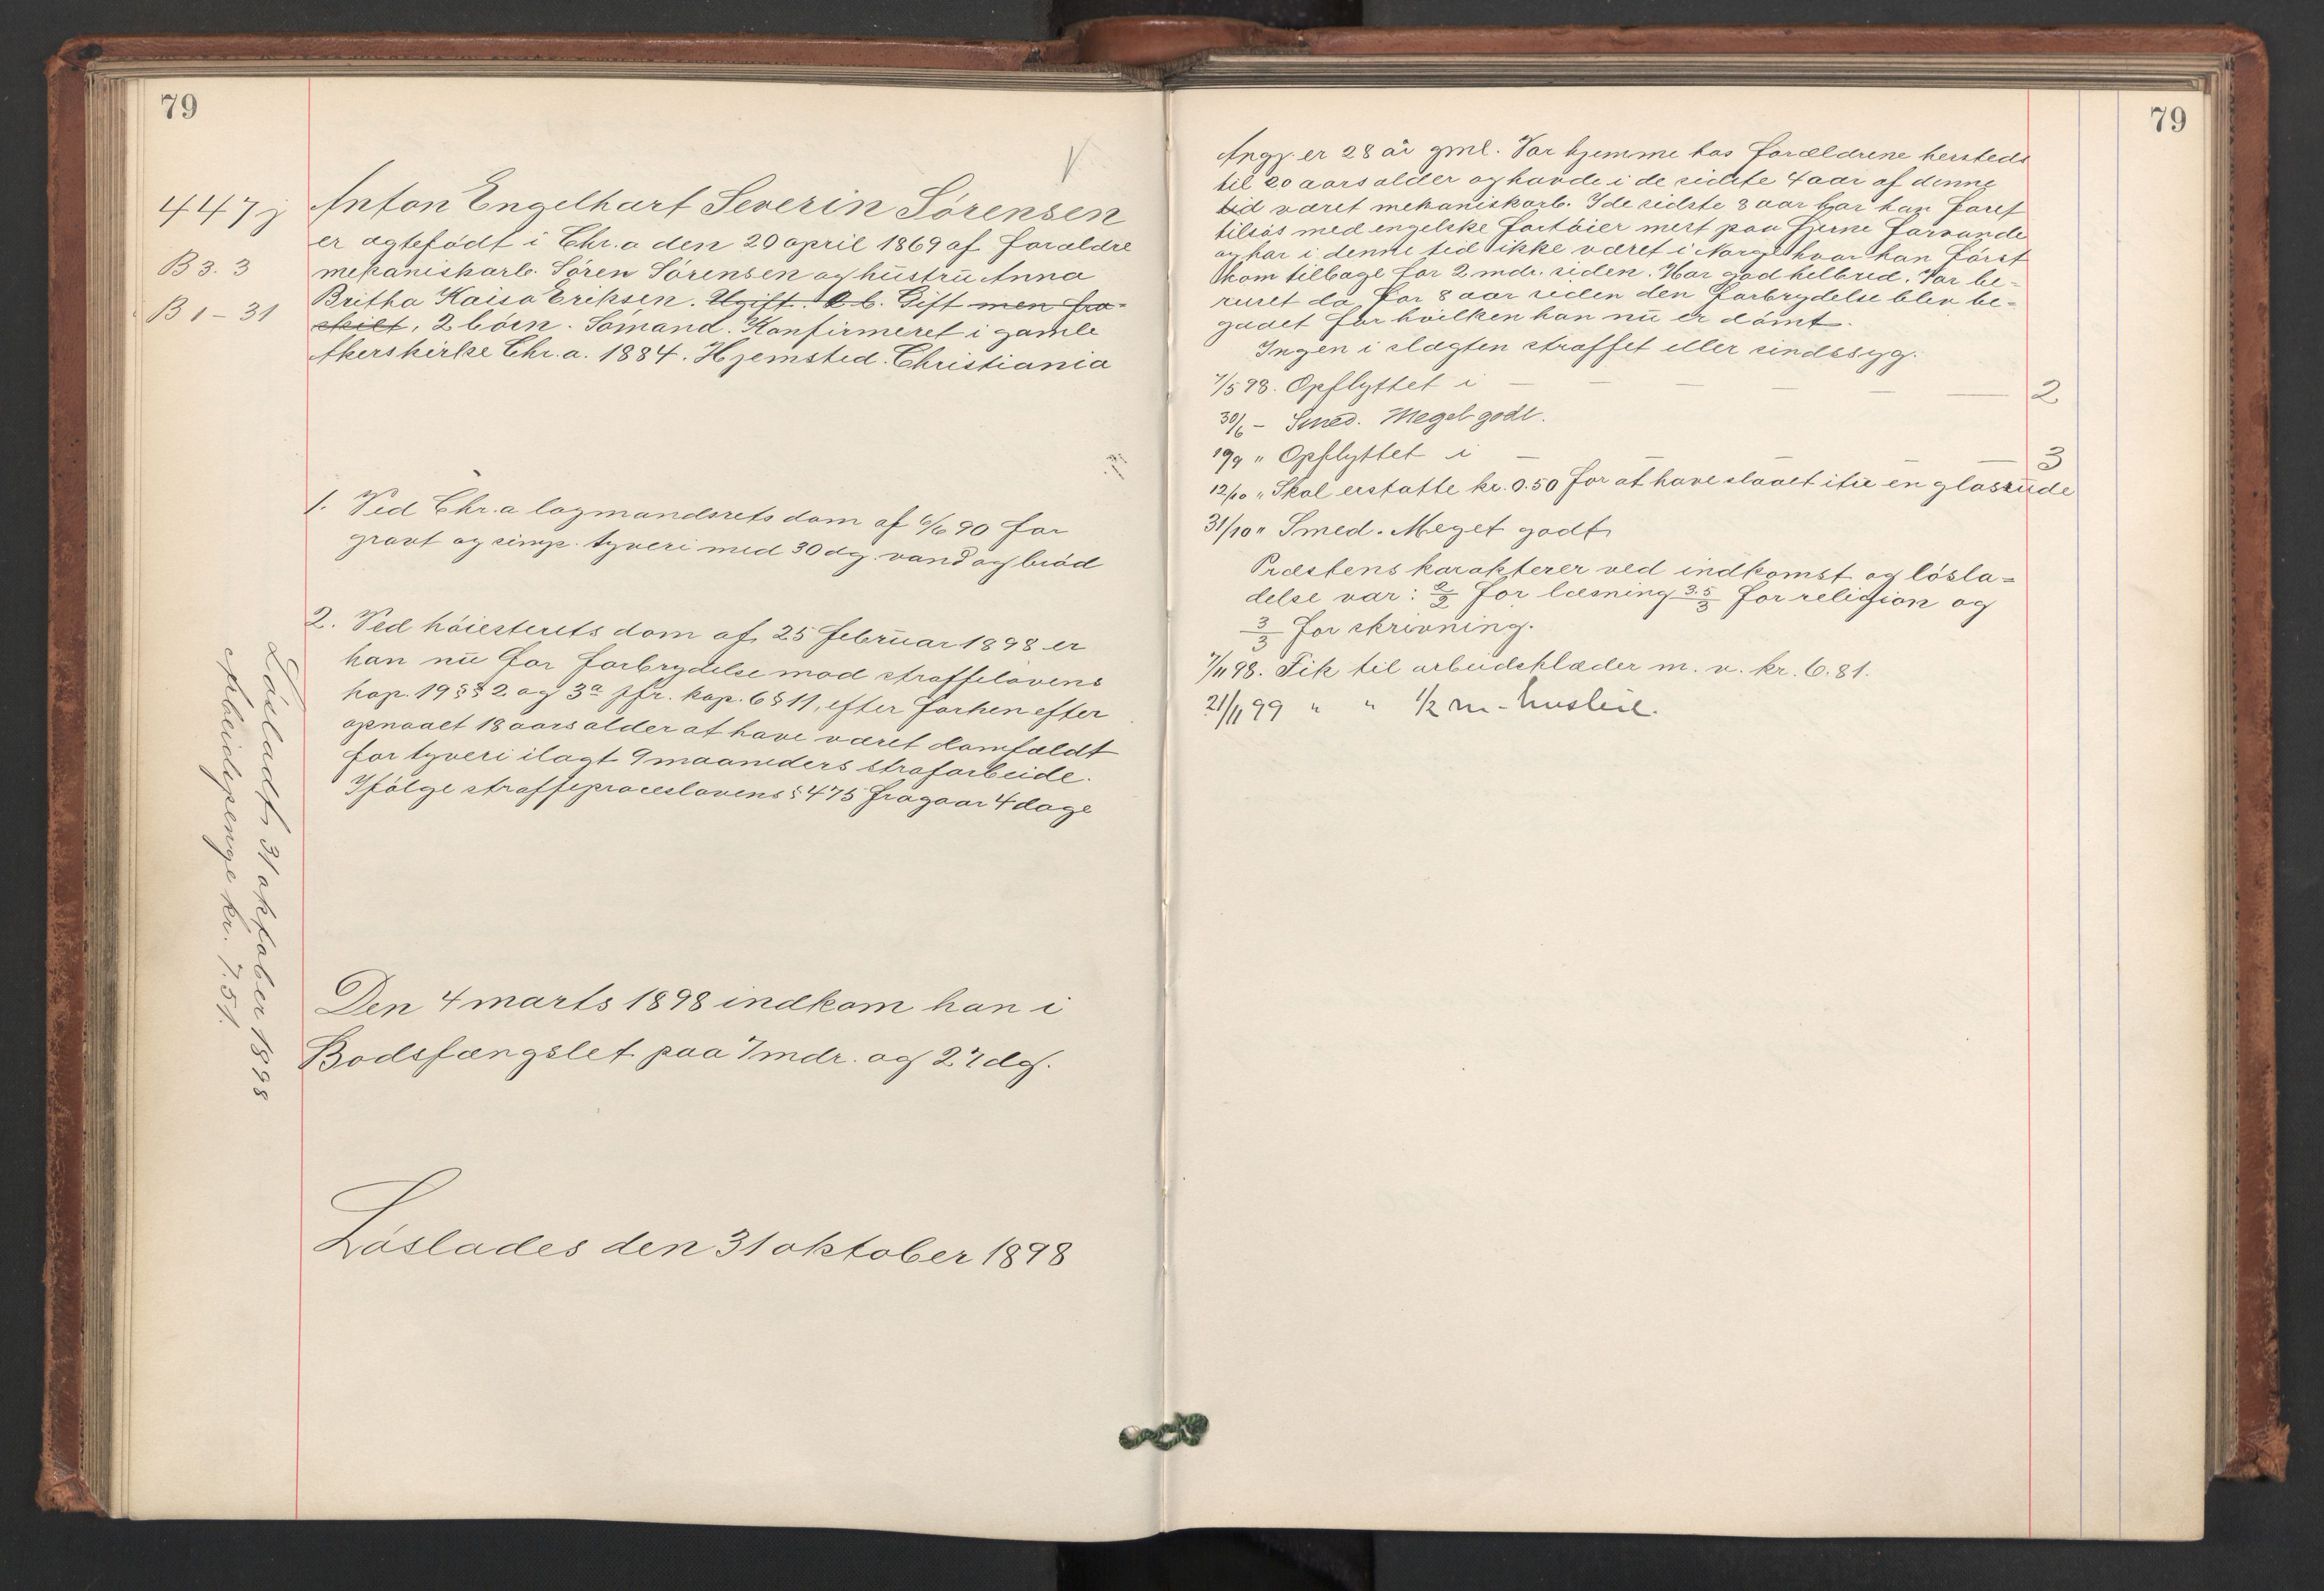 79
447 j
B 3. 3
B 1 – 31
Anton Engelhart Severin Sörensen
er ægtefödt i Chr.a den 20 april 1869 af forældre
mekaniskarb. Sören Sörensen og hustru Anna
Britha Kaisa Eriksen. Ugift. B.b. Gift men fra-
skilt, 2 börn. Sömand. Konfirmeret i gamle
Akerskirke Chr.a. 1884. Hjemsted. Christiania
1. Ved Chr.a lagmandsrets dom af 6/6 90 for
grovt og simp. tyveri med 30 dg. vand og bröd
2. Ved höiesterets dom af 25 februar 1898 er
han nu for forbrydelse mod straffelovens
kap. 19 §§ 2 og 3a jfr. kap. 6 § 11, efter forhen efter
opnaaet 18 aars alder at have været domfældt
for tyveri ilagt 9 maaneders strafarbeide.
Ifölge straffeproceslovens § 475 fragaar 4 dage
Den 4 marts 1898 indkom han i
Bodsfængslet paa 7 mdr. og 27 dg.
Löslades den 31 oktober 1898
Lösladt 31 oktober 1898
Arbeidspenge kr. 7.51.
79
Angjr er 28 år gml. Var hjemme hos forældrene hersteds
til 20 aars alder og havde i de sidste 4 aar af denne
tid været mekaniskarb. I de sidste 8 aar har han faret
tilsös med engelske fartöier mest paa fjerne farvande
og har i denne tid ikke været i Norge hvor han först
kom tilbage for 2 mdr. siden. Har god helbred. Var be-
ruset da for 8 aar siden den forbrydelse blev be-
gaaet for hvilken han nu er dömt.
Ingen i slægten straffet eller sindssyg.
7/5 98. Opflyttet i – – – – – – 2
30/6 – Smed. Meget godt.
19/9 " Opflyttet i – – – – – 3
12/10 " Skal erstatte kr. 0.50 for at have slaaet itu en glasrude
31/10 " Smed. Meget godt
Præstens karakterer ved indkomst og lösla-
delse var: 2/2 for læsning 3.5/3 for religion og
3/3 for skrivning.
7/11 98. Fik til arbeidsklæder m. v. kr. 6.81.
21/11 99 " " 1/2 m. husleie.